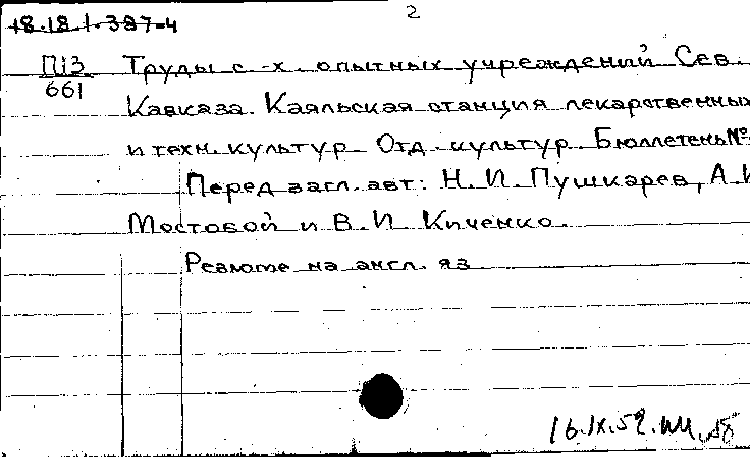 18.18.1.387-4
2
П13
661
Труды с.-х. опытных учреждений Сев.
Кавказа. Каяльская станция лекарственных
и техн. культур. Отд. культур. Бюллетень №
Перед загл. авт: Н. И. Пушкарев, А. И
Мостовой и В. И Книченко.
Резюме на англ. яз
16.IX.52.